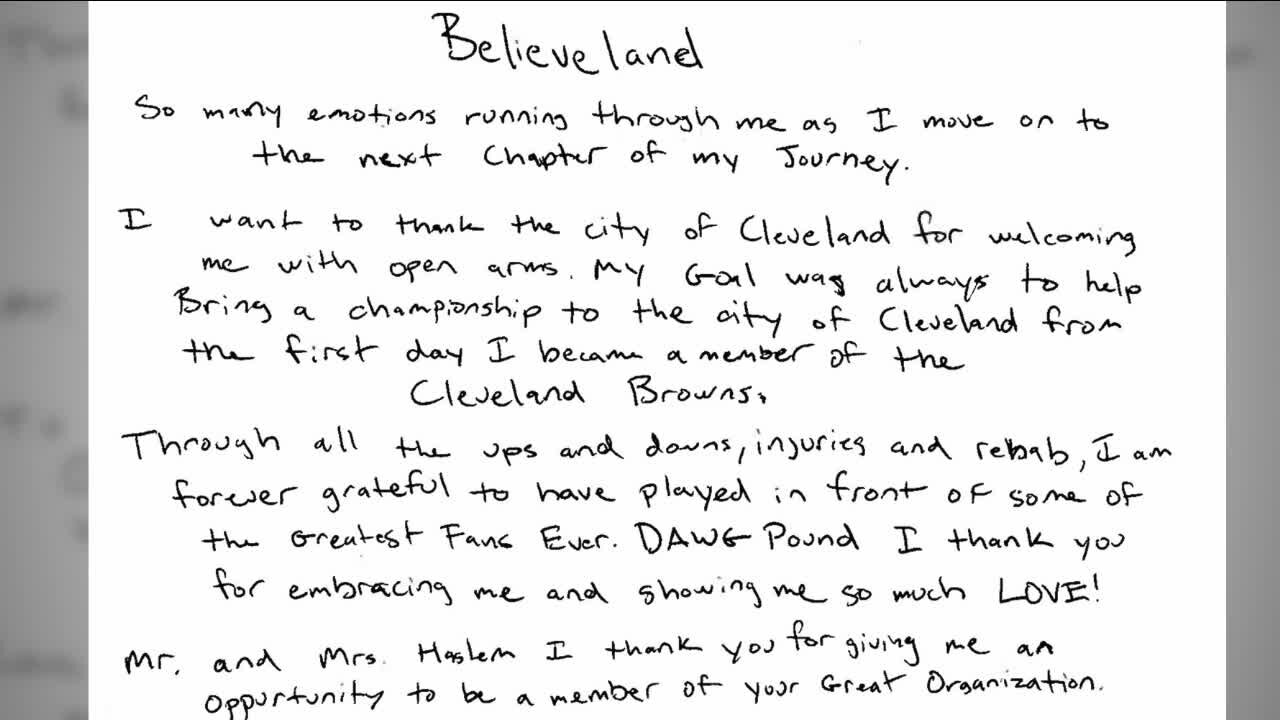 Believeland
So many emotions running through me as I move on to
the next Chapter of my Journey.
I want to thank the city of Cleveland for welcoming
me with open arms. My Goal was always to help
Bring a championship to the city of Cleveland from
the first day I became a member of the
Cleveland Browns.
Through all the ups and downs, injuries and rehab, I am
forever grateful to have played in front of some of
the Greatest Fans Ever. DAWG Pound I thank you
for embracing me and showing me so much LOVE!
Mr. and Mrs. Haslem I thank you for giving me an
oppurtunity to be a member of your Great Organization.